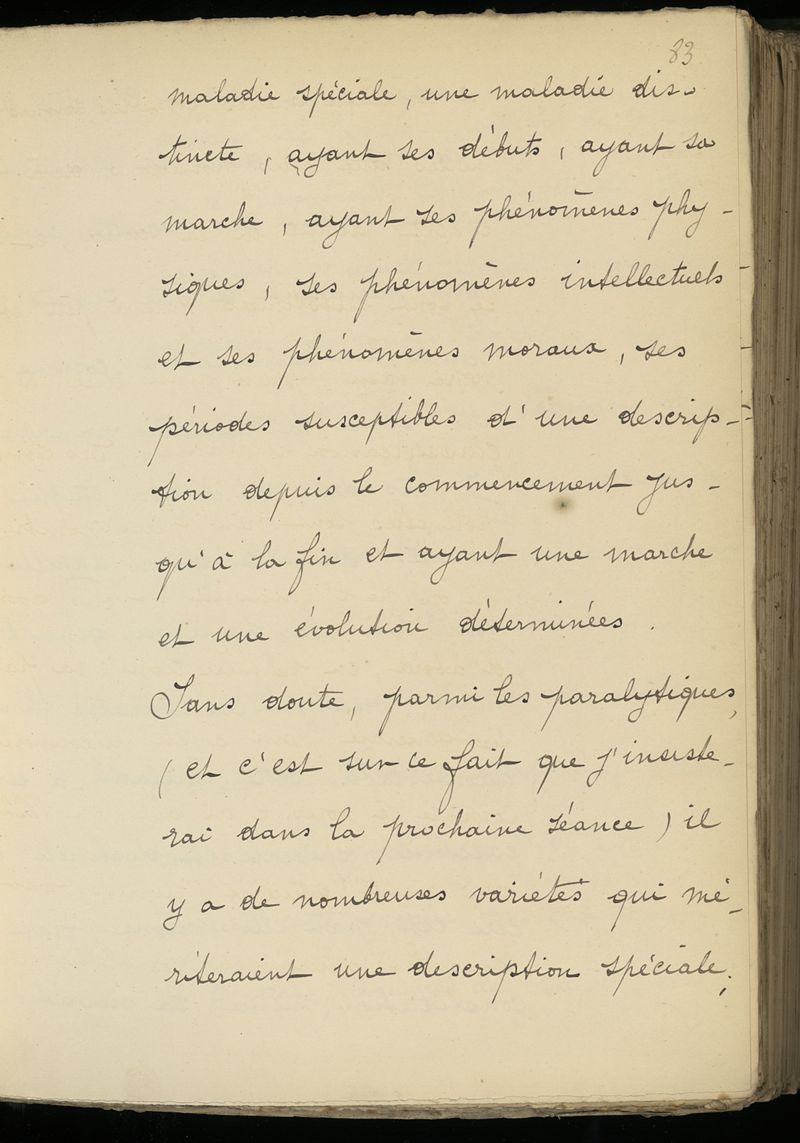 83
maladie spéciale, une maladie dis-
tincte, ayant ses débuts, ayant sa
marche, ayant ses phénomènes phy-
siques, ses phénomènes intellectuels
et ses phénomènes moraux, ses
périodes susceptibles d'une descrip-
tion depuis le commencement jus-
qu'à la fin et ayant une marche
et une évolution déterminées.
Sans doute, parmi les paralytiques,
(et c'est sur ce fait que j'insiste-
rai dans la prochaine séance) il
y a de nombreuses variétés qui mé-
riteraient une description spéciale;